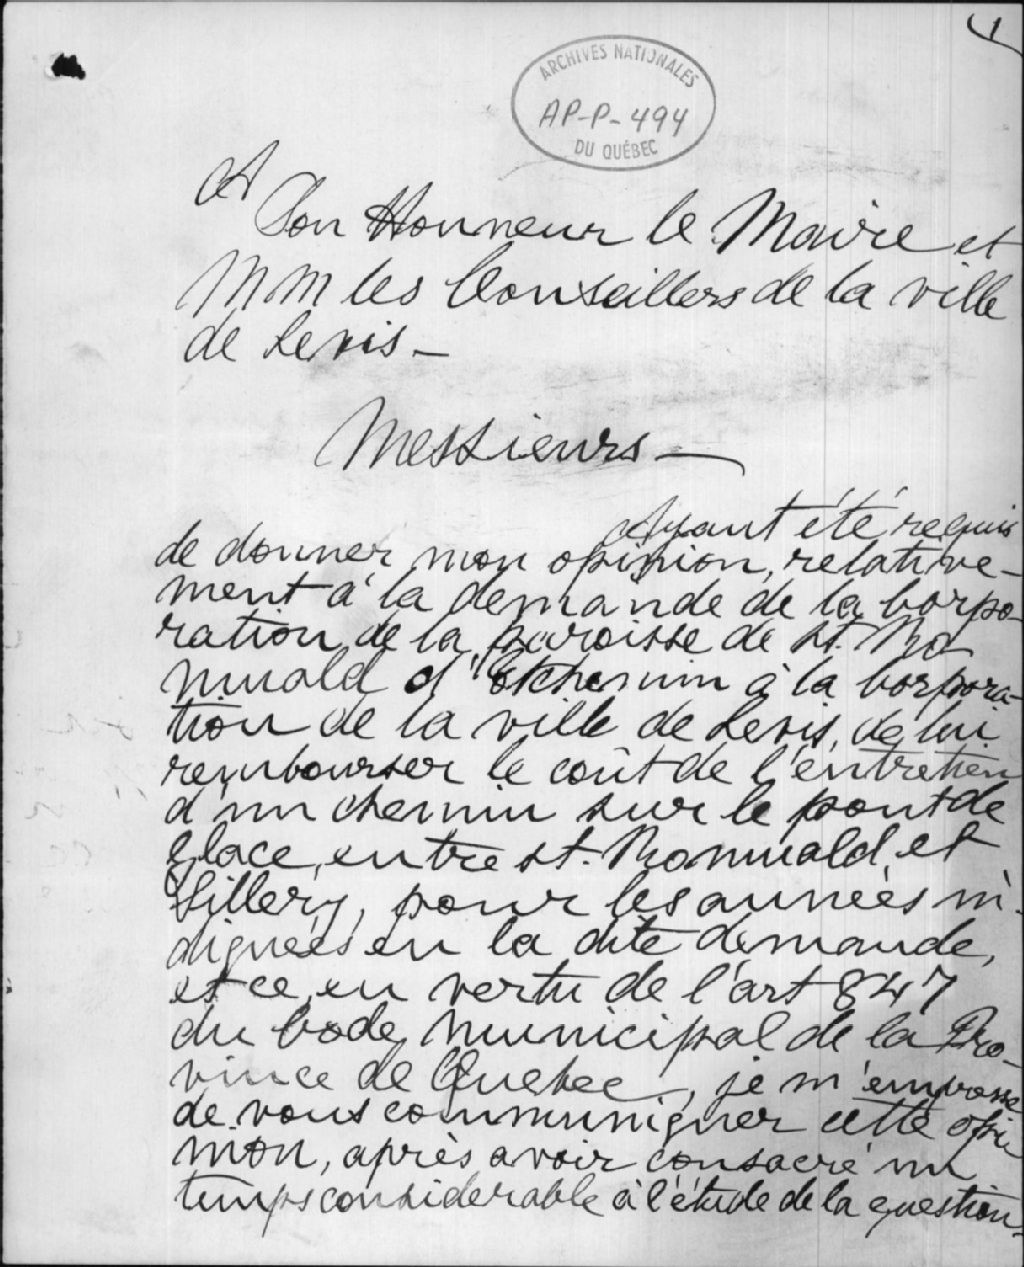 1
ARCHIVES NATIONALES
AP-P-494
DU QUÉBEC
A
Son Honneur le Maire et
MM les Conseillers de la ville
de Levis —
Messieurs —
Ayant été requis
de donner mon opinion, relative-
ment à la demande de la Corpo-
ration de la paroisse de St. Ro-
muald d'Etchemin à la Corpora-
tion de la ville de Levis, de lui
rembourser le coût de l'entretien
d'un chemin sur le pont de
glace, entre St. Romuald et
Sillery, pour les années in-
diquées en la dite demande,
et ce, en vertu de l'art 847
du Code Municipal de la Pro-
vince de Quebec, je m'empresse
de vous communiquer cette opi-
nion, après avoir consacré un
temps considerable à l'étude de la question.